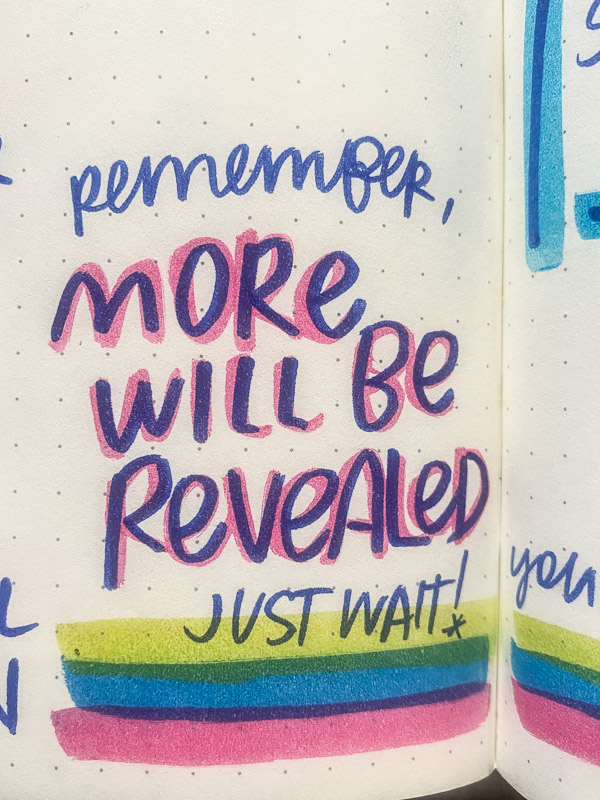 remember,
MORe
WILL Be
ReVeALeD
JUST WAIT!
you